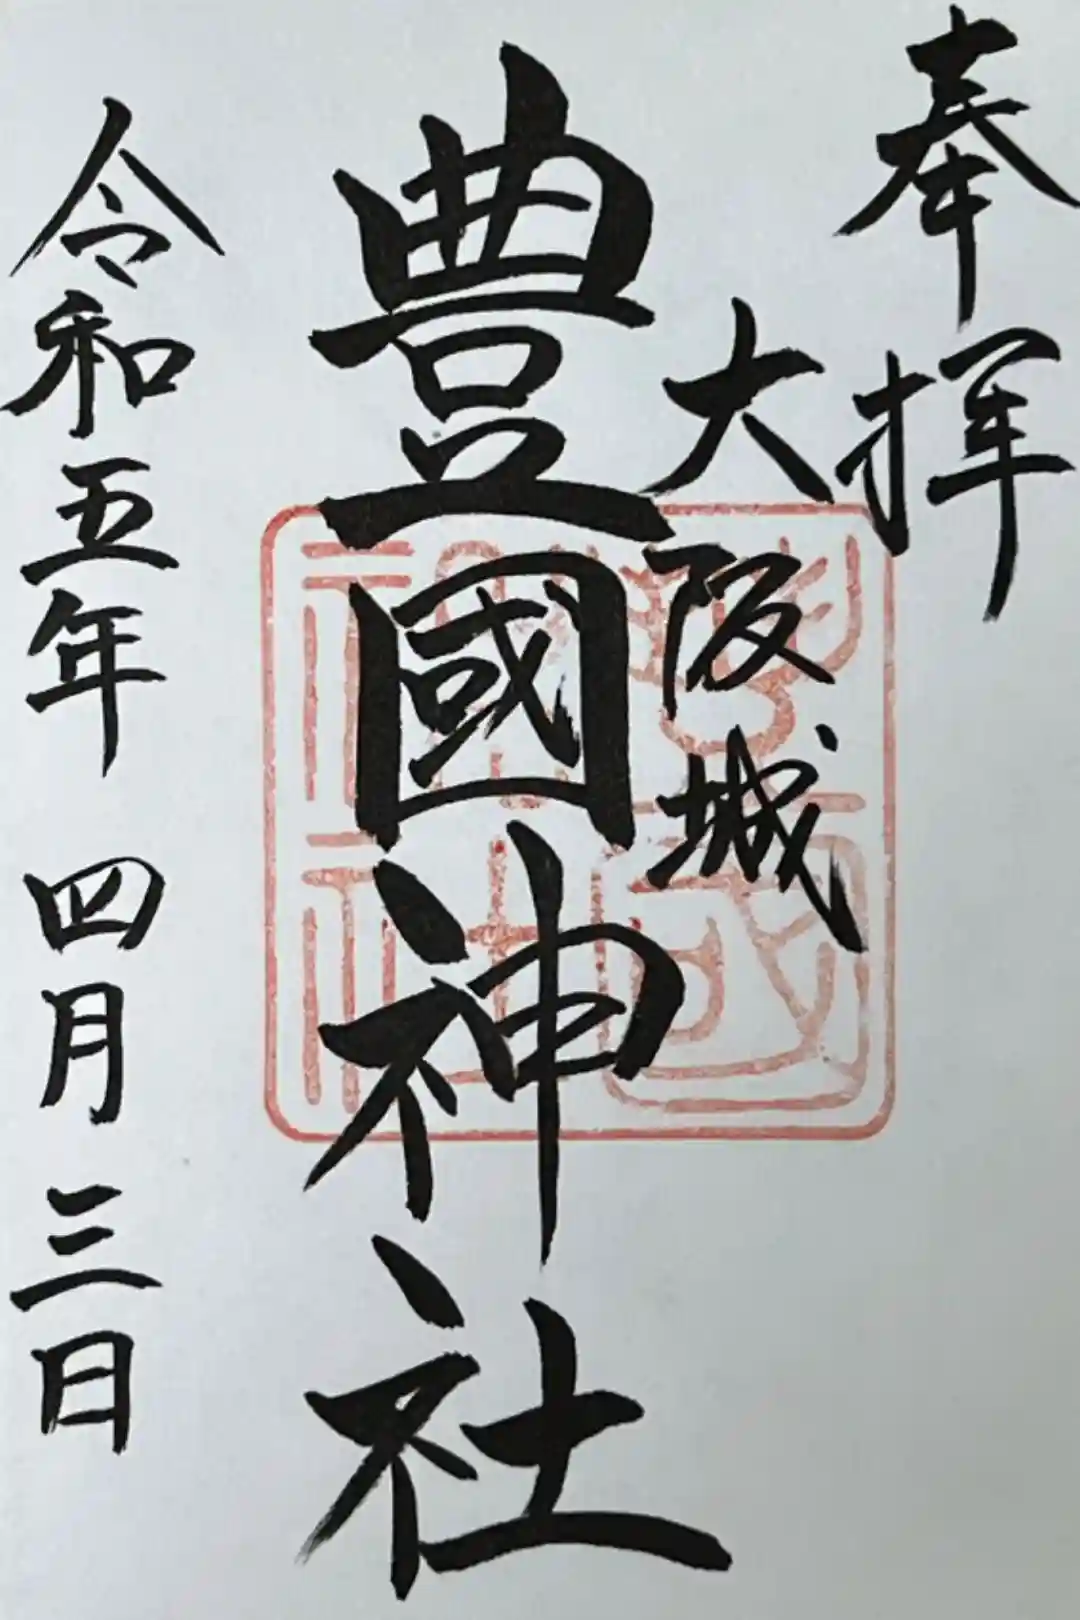 奉拝
大阪城
豊國神社
令和五年 四月 三日